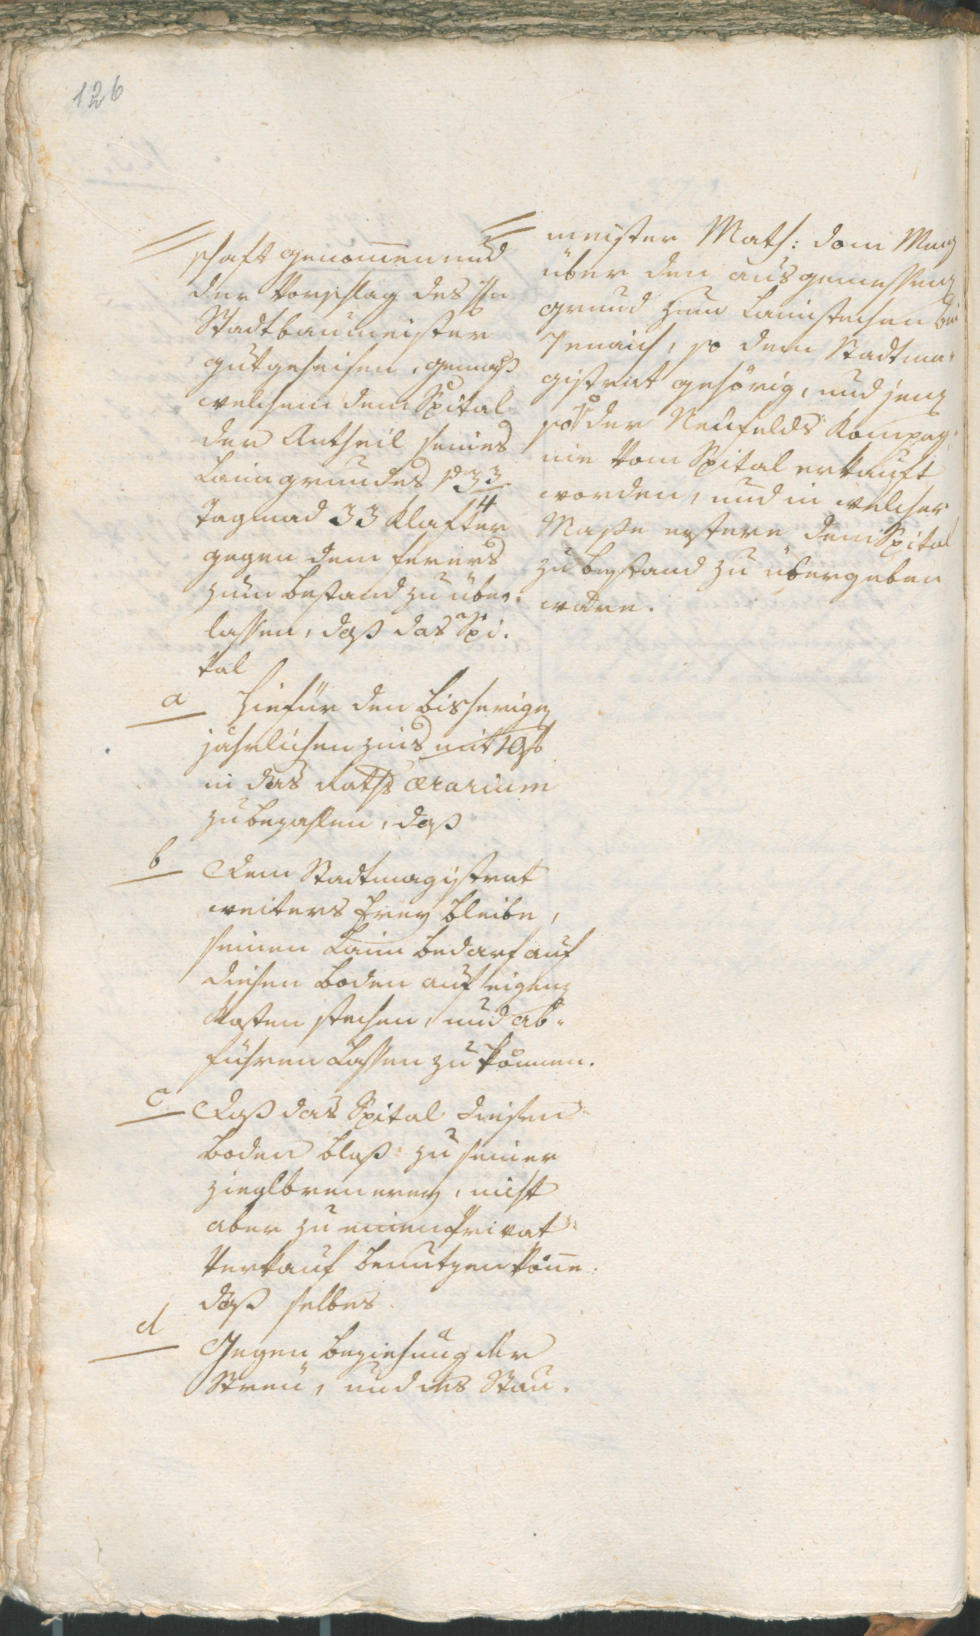 126
schaft genom̄en und
der Vorschlag des H.
Stadtbaumeister
gutgeheisen, gemäß
welchem dem Spital
der Antheil seines
Laimgrundes pr 3 3/4
Tagmad 33 Klafter
gegen dem ferners
zum bestand zu über-
lassen, daß das Spi-
tal
a hiefür den bisherigen
jährlichen zins mit
in das Raths ærarium
zubezahlen, daß
b Dem Stadtmagistrat
weiters frey bleibe,
seinen Laim bedarf auf
diesen boden auf eigene
Kosten stechen, und ab-
führen Lassen zu können.
c Daß das Spital diesen
boden bloß zu seiner
zieglbrenerey, nicht
aber zu einen Privat-
Verkauf benutzen kön̄e.
daß selbes
d Gegen beziehung der
Streu, und des Stau-
meister Math: dom
über den ausgemessenen
grund zum Laimstechen bei
, so dem Stadtma-
gistrat gehörig, und jenen
so der Neufelds Kompag-
nie vom Spital erkauft
worden, und in welcher
Maße erstere dem Spital
zu bestand zu übergeben
wäre.